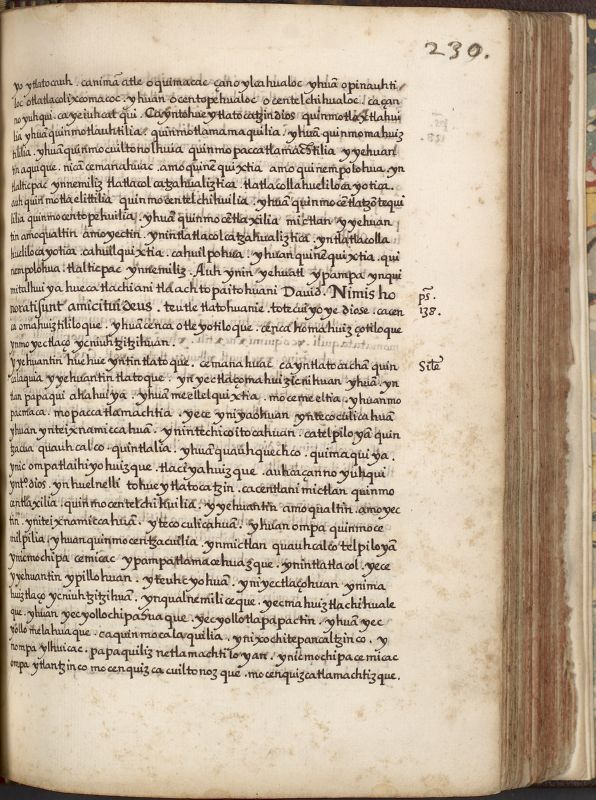 230.
yo ytlatouh. canimã atle oquimacac çanoylcahualoc yhuã opinauhti
loc otlatlaçolixcomacoc. yhuan ocentopehualoc ocentelchihualoc. caçan
noyuhqui. cayeiuhcatqui. Cayntohueytlatocatzin dios. quinmotlaxtlahui
lia yhuã quinmotlauhtilia. quinmotlamamaquilia. yhuã quinmomahuiz
tililia. yhuã quinmocuiltonolhuia. quinmopaccatlamachtilia yyehuan
tin aquique. nicã cemanahuac. amo quinẽquixtia amo quinempolohua. yn
tlalticpac ynnemiliz tlatlacolcatzahualiztica. tlatlacollahuelilocayotica.
auh quinmotlaelittilia quinmocentelchihuilia. yhuã quinmocẽtlatzõtequi
lilia quinmocentopehuilia. yhuã quinmocẽtlaxilia mictlan yyehuan
tin amoqualtin amoyectin. ynintlatlacolcatzahualiztica. yntlatlacolla
huelilocayotica. cahuilquixtia. cahuilpohua. yhuan quinẽquixtia. qui
nempolohua. tlalticpac ynnemiliz. Auh ynin yehuatl ypampa ynqui
mitalhui ya huecatlachiani tlaachtopaitohuani Dauid. Nimis ho
norati sunt amici tui deus. teutle tlatohuanie. totecuiyoye diose. cacen
ca omahuiztililoque. yhuã cenca otleyotiloque. cenca homahuizçotiloque
ynmoyectlaço ycniuhtzitzihuan.
yyehuantin huehueyntin tlatoque. cemanahuac cayntlatocachã quin
calaquia yyehuantin tlatoque. yn yectlaçomahuizicnihuan yhuã. yn
tlan papaqui ahahuiya. yhuã meellelquixtia. mocemeeltia. yhuan mo
pacmaca. mopaccatlamachtia. yece yniyaohuan yntecoculicahuã
yhuan ynteixnamiccahuã. ynintechicoitocahuan. catelpiloyã quin
tzacua quauhcalco. quintlalia. yhuã quauhquechco. quimaquiya.
ynic ompatlaihiyohuizque. tlaciyahuizque. auhcaçannoyuhqui
ynto dios. yn huelnelli tohueytlatocatzin. cacentlani mictlan quinmo
centlaxilia. quinmocentelchihuilia. yyehuantin amoqualtin. amoyec
tin. ynteixnamiccahuã. ytecoculicahuã. yhuan ompa quinmoce
milpilia. yhuan quinmocentzacuilia. ynmictlan quauhcalco telpiloyã
ynicmochipa cemicac ypampatlamacehuazque. ynintlatlacol. yece
yyehuantin ypillohuan. yteuhcyohuã. yniyectlaçohuan ynima
huiztlaço ycniuhtzitzihuã. ynqualnemiliceque. yecmahuiztlachihuale
que. yhuan yecyollochipahuaque. yecyollotlapapactin. yhuã yec
yollomelahuaque. caquinmocalaquilia. ynixochitepancaltzinco. y
nompa ylhuicac. papaquiliznetlamachtiloyan. ynicmochipacemicac
ompa ytlantzinco mocenquizcacuiltonozque. mocenquizcatlamachtizque.
ps.
138.